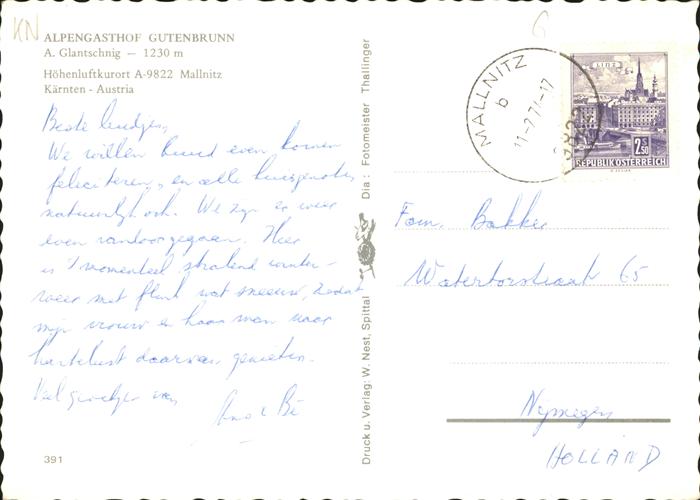 KN
6
ALPENGASTHOF GUTENBRUNN
A. Glantschnig — 1230 m
Höhenluftkurort A-9822 Mallnitz
Kärnten - Austria
Beste
We willen even komen
feliciteren, en alle huisgenoten
natuurlijk ook. We zijn er weer
even vandoorgegaan. Hier
is 't momenteel stralend winter-
weer met flink wat sneeuw, zodat
mijn vrouw en haar man naar
hartelust daarvan genieten.
Veel groetjes van
Bé
391
Druck u. Verlag: W. Nest, Spittal
Dia: Fotomeister Thallinger
MALLNITZ
b
11-2.71-17
9822
LINZ
2.50
REPUBLIK ÖSTERREICH
Fam. Bakker
Watertorstraat 65
Nijmegen
HOLLAND